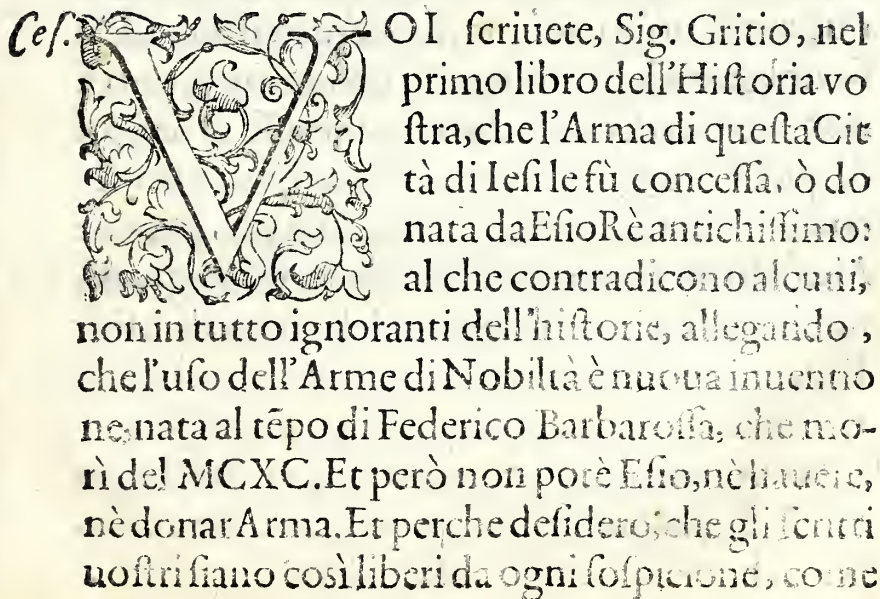 Ceſ. VOI ſcriuete, Sig. Gritio, nel
primo libro dell'Hiſtoria vo
ſtra, che l'Arma di queſta Cit
tà di Ieſi le fù conceſſa, ò do
nata da Eſio Rè antichiſſimo:
al che contradicono alcuni,
non in tutto ignoranti dell'hiſtorie, allegando,
che l'uſo dell'Arme di Nobiltà è nuoua inuentio
ne, nata al tẽpo di Federico Barbaroſſa, che mo-
rì del MCXC. Et però non potè Eſio, nè hauere,
nè donar Arma. Et perche deſidero, che gli ſcritti
uoſtri ſiano così liberi da ogni ſoſpicione, come